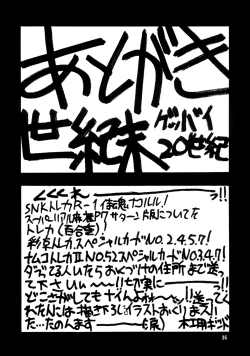 あとがき
世紀末
ゲッバイ
20世紀
SNKトレカR-1 ナコルル!
スーパーリアル麻雀P7 サターン版についてる
トレカ(百合室)!
彩京トレカ スペシャルカードNO.2.4.5.7!
ナムコトレカⅡ NO.52スペシャルカードNO.3.4.7!
ダブってる人いたらおくづけの住所まで送っ
て下さい
どこさがしてもナイんよォ 送ってく
れた人には描き下ろしイラストおくりまス!
た…たのんます
35